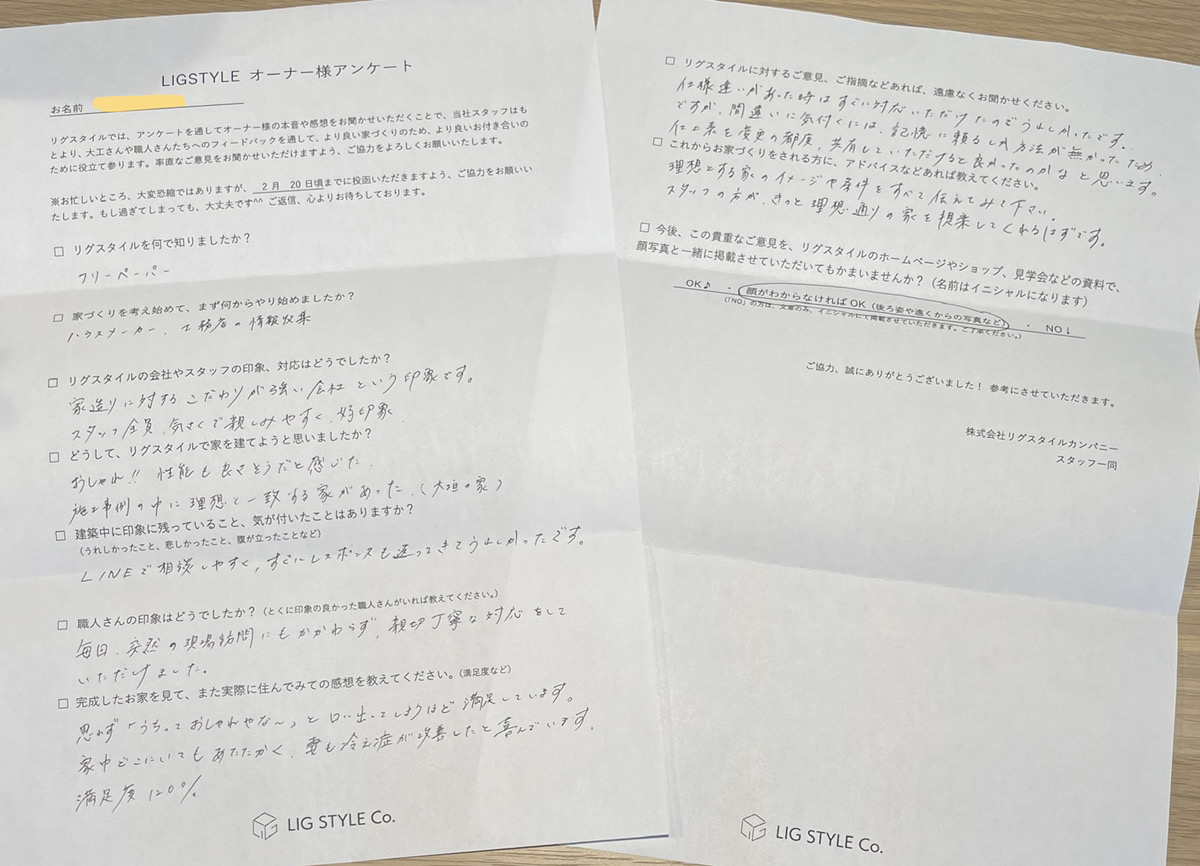 LIGSTYLE オーナー様アンケート
お名前
リグスタイルでは、アンケートを通してオーナー様の本音や感想をお聞かせいただくことで、当社スタッフはも
とより、大工さんや職人さんたちへのフィードバックを通して、より良い家づくりのため、より良いお付き合いの
ために役立て参ります。率直なご意見をお聞かせいただけますよう、ご協力をよろしくお願いいたします。
※お忙しいところ、大変恐縮ではありますが、 2月 20日頃までに投函いただきますよう、ご協力をお願いい
たします。もし過ぎてしまっても、大丈夫です^^ ご返信、心よりお待ちしております。
□ リグスタイルを何で知りましたか？
フリーペーパー
□ 家づくりを考え始めて、まず何からやり始めましたか？
ハウスメーカー、工務店の情報収集
□ リグスタイルの会社やスタッフの印象、対応はどうでしたか？
家造りに対するこだわりが強い会社という印象です。
スタッフ全員、気さくで親しみやすく、好印象
□ どうして、リグスタイルで家を建てようと思いましたか？
おしゃれ!! 性能も良さそうだと感じた.
施工事例の中に理想と一致する家があった.(大垣の家)
□ 建築中に印象に残っていること、気が付いたことはありますか？
（うれしかったこと、悲しかったこと、腹が立ったことなど）
LINEで相談しやすく、すぐにレスポンスも返ってきてうれしかったです。
□ 職人さんの印象はどうでしたか？（とくに印象の良かった職人さんがいれば教えてください。）
毎日、突然の現場訪問にもかかわらず、親切丁寧な対応をして
いただけました。
□ 完成したお家を見て、また実際に住んでみての感想を教えてください。（満足度など）
思わず「うちっておしゃれやな〜」と口に出てしまうほど満足しています。
家中どこにいてもあたたかく、妻も冷え症が改善したと喜んでいます.
満足度120%
LIG STYLE Co.
□ リグスタイルに対するご意見、ご指摘などあれば、遠慮なくお聞かせください。
仕様違いがあった時はすぐに対応いただけたのでうれしかったです。
ですが、間違いに気付くには、記憶に頼るしか方法が無かったため、
仕上表を変更の都度、共有していただけると良かったのかなと思います。
□ これからお家づくりをされる方に、アドバイスなどあれば教えてください。
理想とする家のイメージや条件をすべて伝えてみて下さい。
スタッフの方が、きっと理想通りの家を提案してくれるはずです。
□ 今後、この貴重なご意見を、リグスタイルのホームページやショップ、見学会などの資料で、
顔写真と一緒に掲載させていただいてもかまいませんか？（名前はイニシャルになります）
OK♪ ・ 顔がわからなければOK（後ろ姿や遠くからの写真など） ・ NO↓
（「NO」の方は、文章のみ、イニシャルにて掲載させていただきます。ご了承ください。）
ご協力、誠にありがとうございました！ 参考にさせていただきます。
株式会社リグスタイルカンパニー
スタッフ一同
LIG STYLE Co.